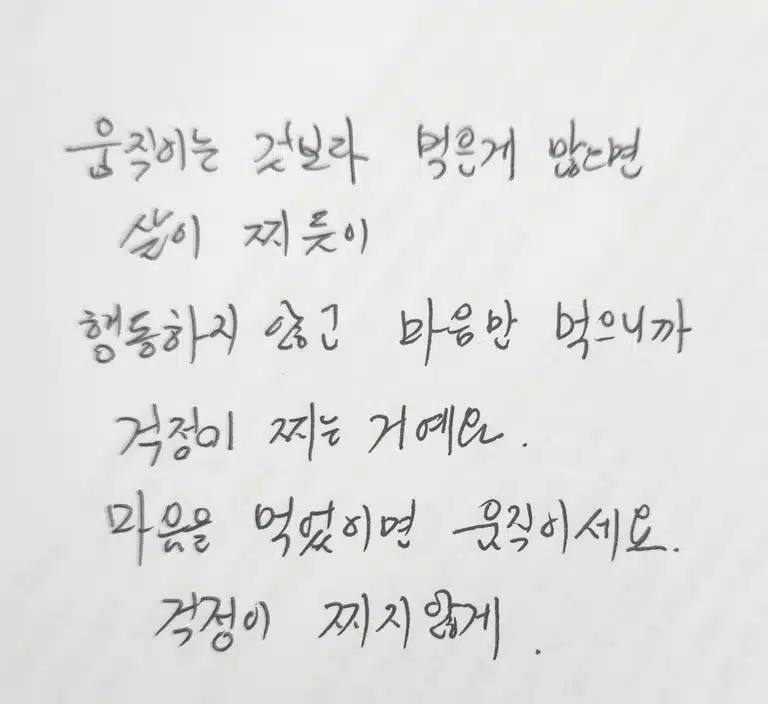 움직이는 것보다 먹은게 많으면
살이 찌듯이
행동하지 않고 마음만 먹으니까
걱정이 찌는 거예요.
마음을 먹었이면 움직이세요.
걱정이 찌지않게.